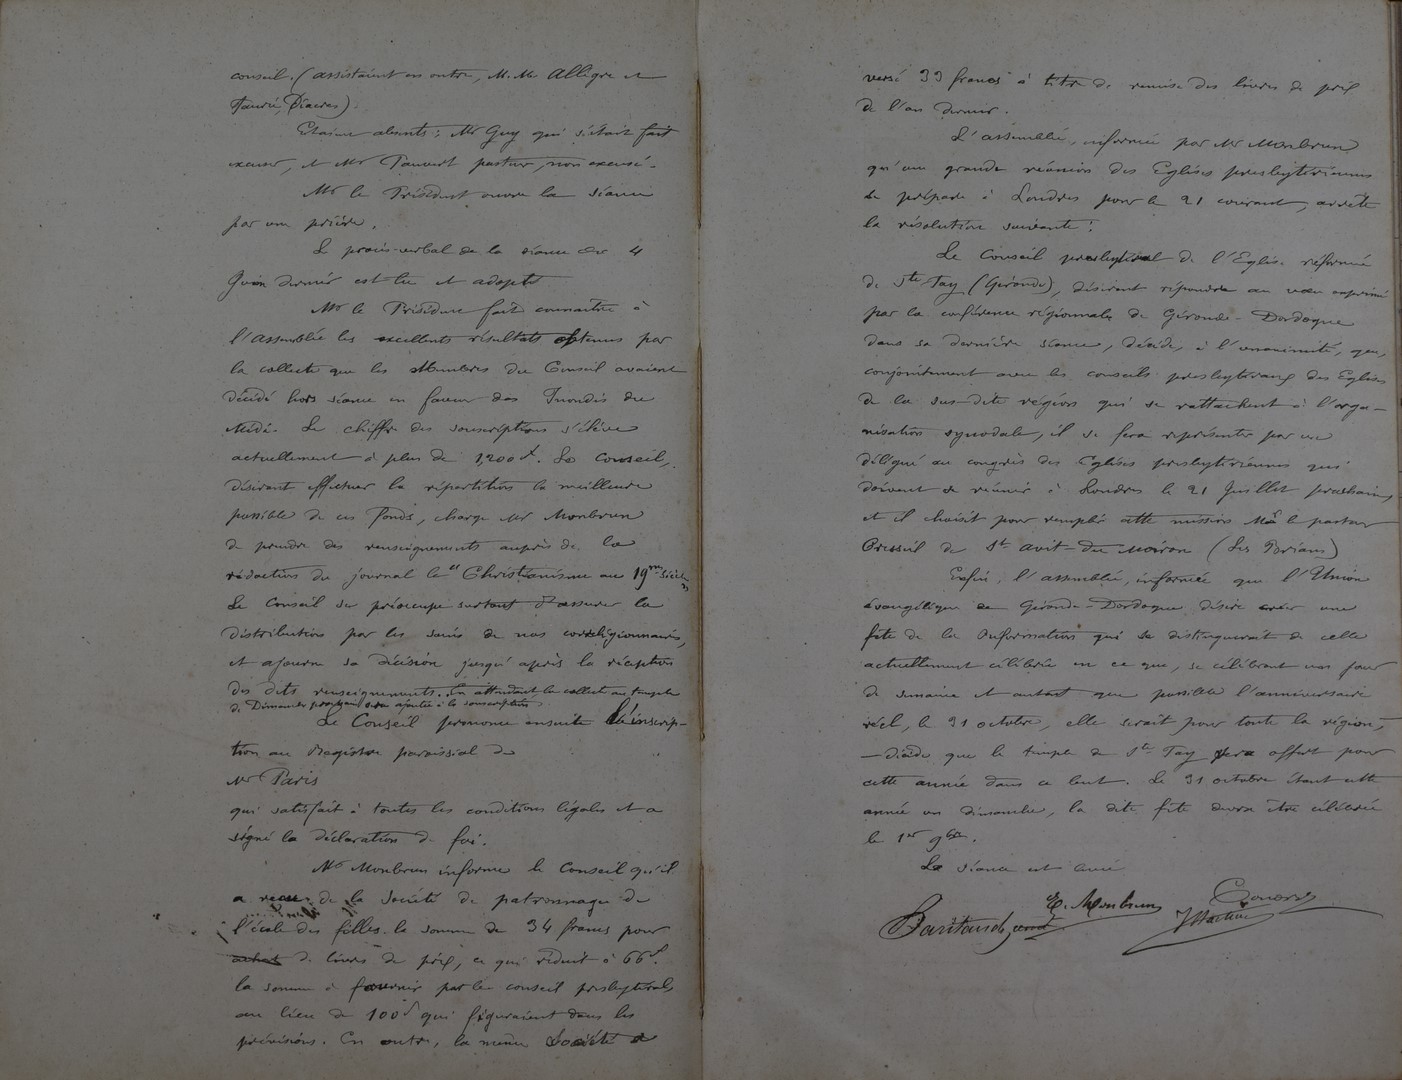 conseil. (assistaient en outre, M. Mrs Allègre et
Fauré, Diacres).
Etaient absents : Mr Guy qui s'était fait
excuser, et Mr Pauvert pasteur, non excusé.
Mr le Président ouvre la séance
par une prière.
Le procès-verbal de la séance du 4
Juin dernier est lu et adopté
Mr le Président fait connaître à
l'Assemblée les excellents résultats obtenus par
la collecte que les Membres du Conseil avaient
décidé hors séance en faveur des Inondés du
Midi. Le chiffre des souscriptions s'élève
actuellement à plus de 1,200 f. Le Conseil,
désirant effectuer la répartition la meilleure
possible de ces fonds, charge Mr Monbrun
de prendre des renseignements auprès de la
rédaction du journal le "Christianisme au 19me siècle"
Le Conseil se préoccupe surtout d'assurer la
distribution par les soins de nos corréligionnaires,
et ajourne sa décision jusqu'après la réception
des dits renseignements. En attendant, la collecte au temple
de Dimanche prochain sera ajoutée à la souscription.
Le Conseil prononce ensuite l'inscrip-
tion au Registre paroissial de
Mr Paris
qui satisfait à toutes les conditions légales et a
signé la déclaration de foi.
Mr Monbrun informe le Conseil qu'il
a recu de la Société de patronnage de
l'école des filles la somme de 34 francs pour
achat de livres de prix, ce qui réduit à 66 f.
la somme à fournir par le conseil presbytéral,
au lieu de 100 f qui figuraient dans les
prévisions. En outre, la meme Société a
versé 33 francs à titre de remise des livres de prix
de l'an dernier.
L'assemblée, informée par Mr Monbrun
qu'une grande réunion des Eglises presbytériennes
se prépare à Londres pour le 21 courant, arrête
la résolution suivante :
Le Conseil presbytéral de l'Eglise réformée
de Ste Foy (Gironde), désirant répondre au vœu exprimé
par la conférence régionale de Gironde-Dordogne
dans sa dernière séance, décide, à l'unanimité, que,
conjointement avec les conseils presbytéraux des Eglises
de la sus-dite région qui se rattachent à l'orga-
nisation synodale, il se fera représenter par un
délégué au congrès des Eglises presbytériennes qui
doivent se réunir à Londres le 21 Juillet prochain,
et il choisit pour remplir cette mission Mr le pasteur
de St Avit-du Moiron (Les Briands)
Enfin, l'assemblée, informée que l'Union
évangélique de Gironde-Dordogne désire créer une
fête de la Réformation qui se distinguerait de celle
actuellement célébrée en ce que, se célébrant un jour
de semaine et autant que possible l'anniversaire
réel, le 31 octobre, elle serait pour toute la région,
— décide que le temple de Ste Foy sera offert pour
cette année dans ce but. Le 31 octobre étant cette
année un dimanche, la dite fête devra être célébrée
le 1er 9bre.
La séance est levée
E. Monbrun